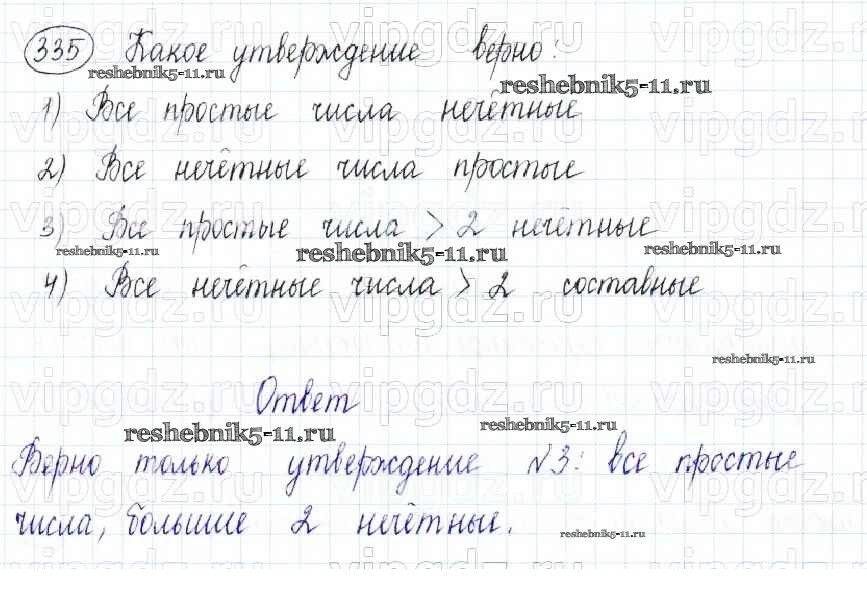 335 Какое утверждение верно:
1) Все простые числа нечётные
2) Все нечётные числа простые
3) Все простые числа > 2 нечётные
4) Все нечётные числа > 2 составные
Ответ
Верно только утверждение №3: все простые
числа, большие 2 нечётные.
reshebnik5-11.ru
reshebnik5-11.ru
reshebnik5-11.ru
reshebnik5-11.ru
reshebnik5-11.ru
reshebnik5-11.ru
reshebnik5-11.ru
reshebnik5-11.ru
reshebnik5-11.ru
vipgdz.ru